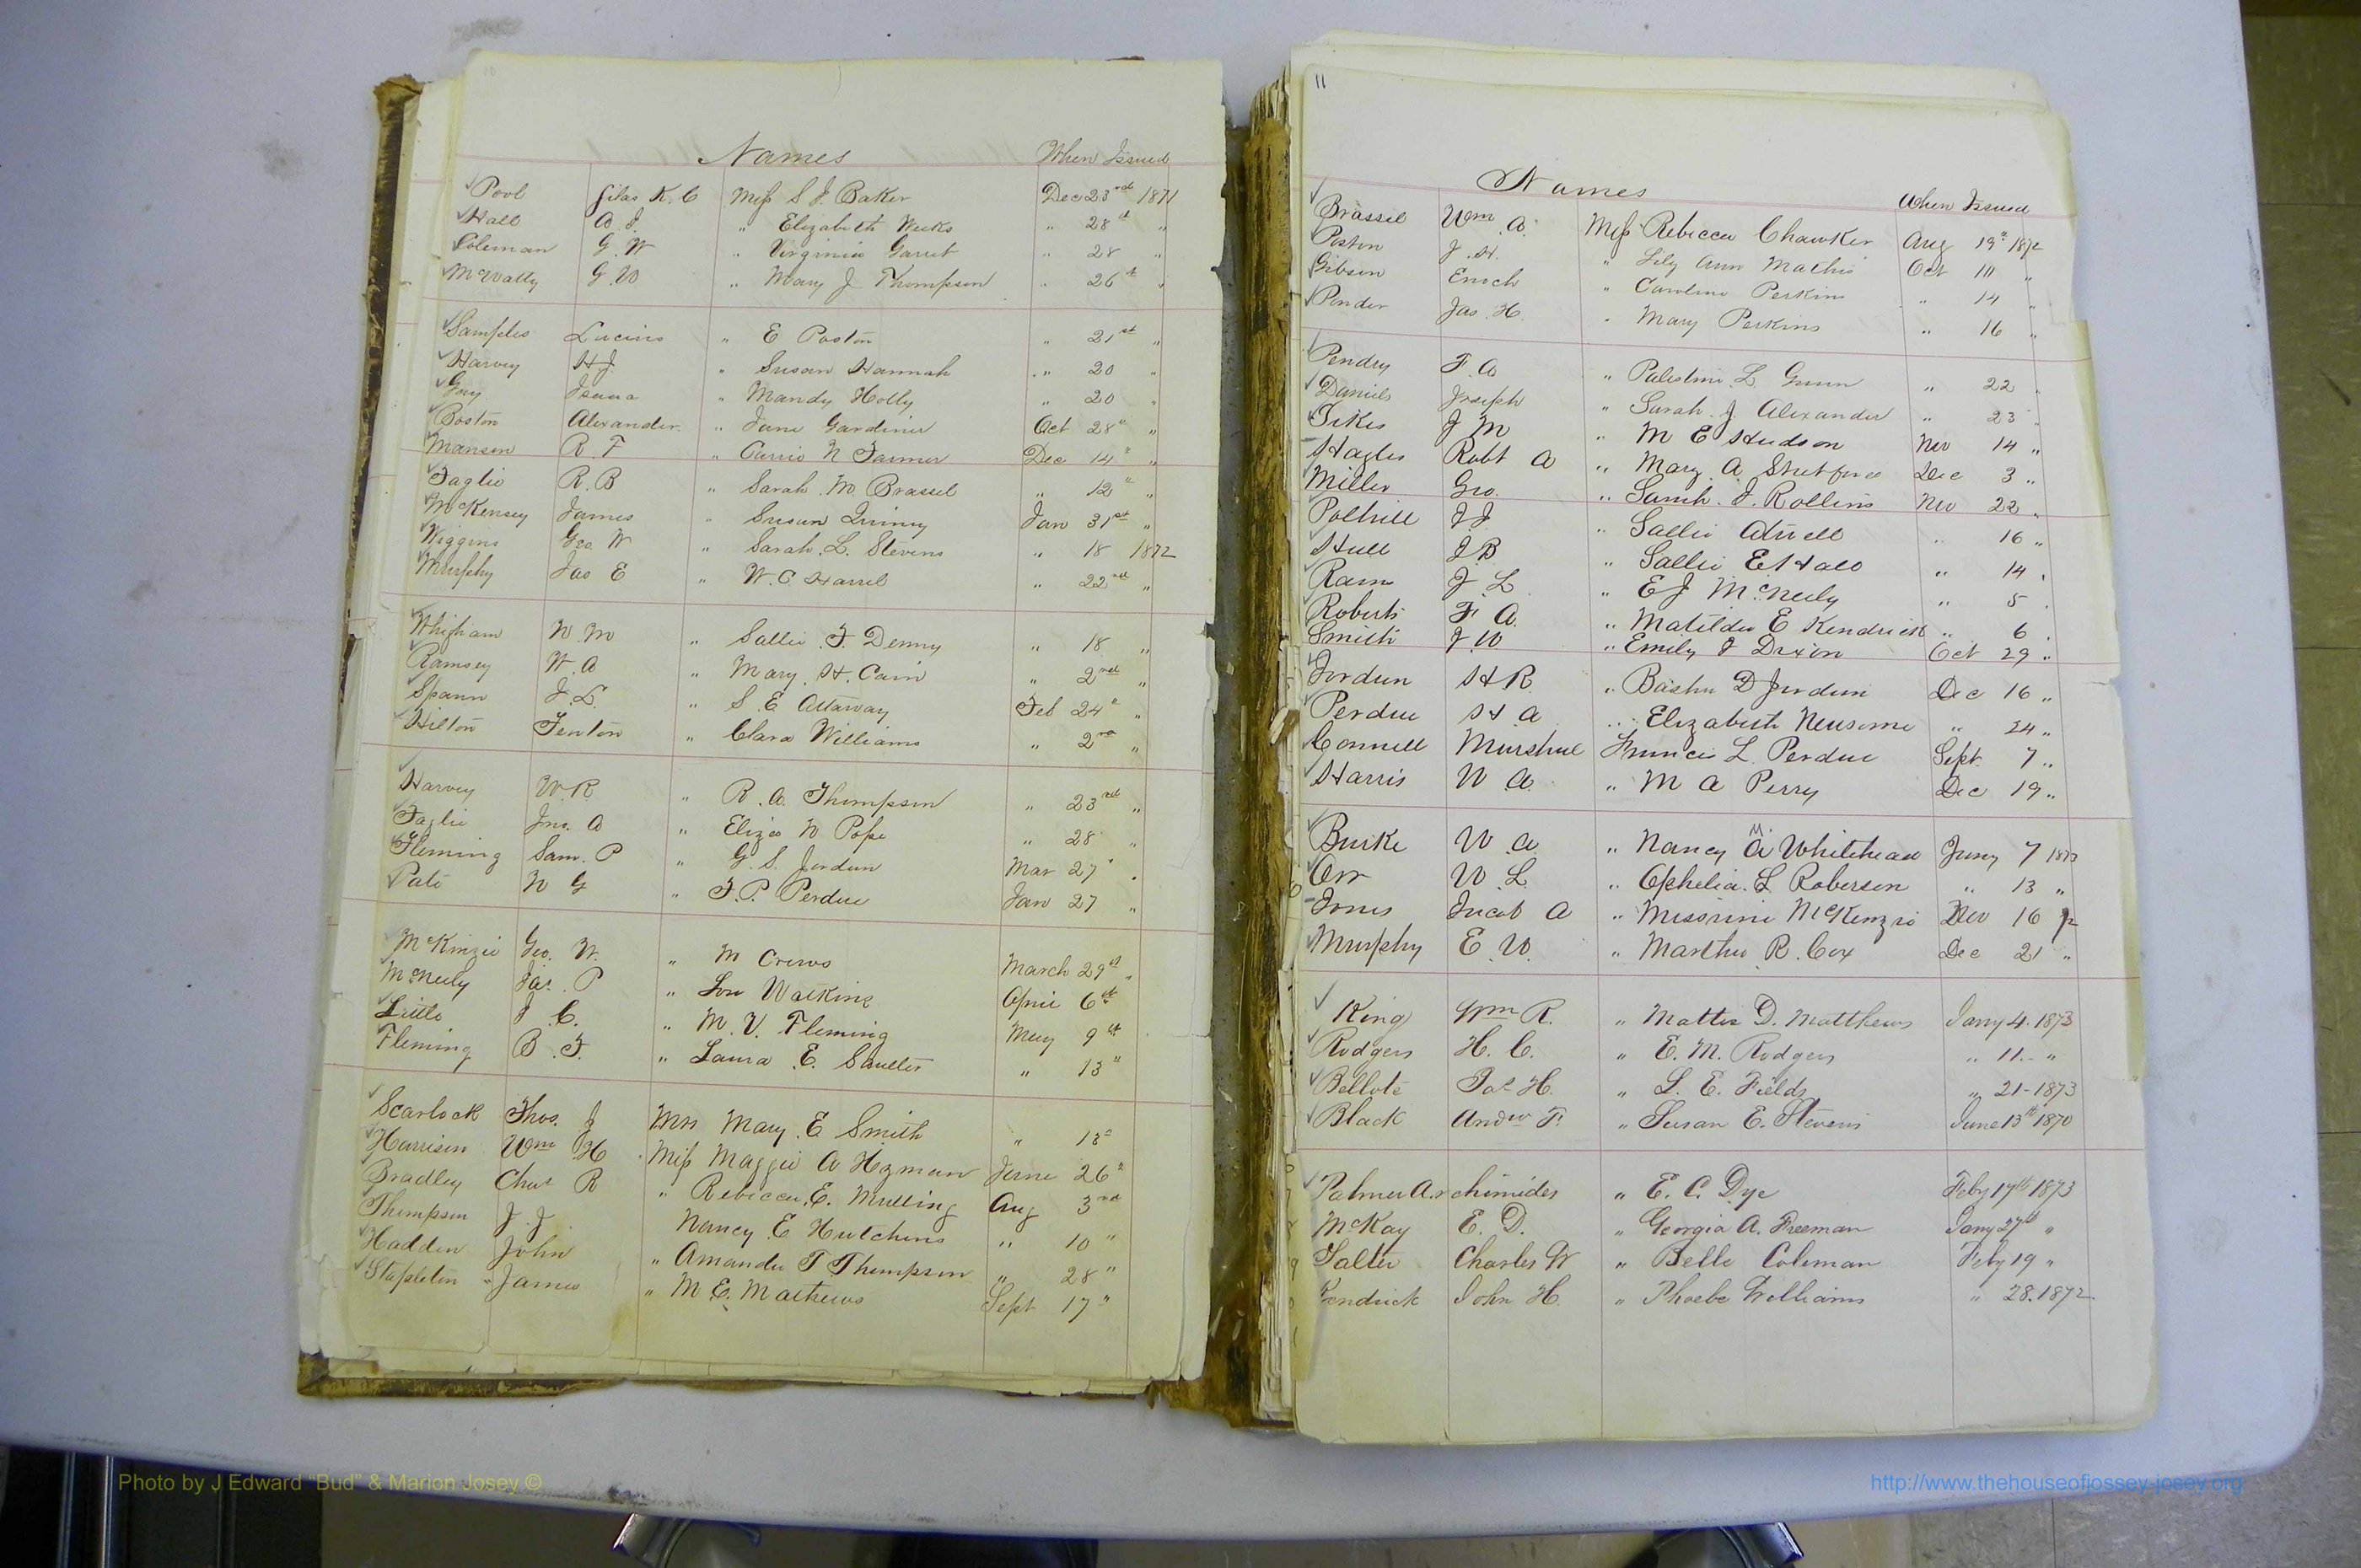 10
Names When Issued
Pool Silas K. C Miss S J. Baker Dec 23rd 1871
Hall A. J. " Elizabeth Weeks " 28th "
Coleman G. W " Virginia Garret " 28 "
McWatty G. W " Mary J Thompson " 26th "
Samples Lucius " E Poston " 21st "
Harvey H J. " Susan Hannah " 20 "
" Mandy Holly " 20 "
Poston Alexander. " Jane Gardiner Oct 28" "
Manson R. F " Carrie N Farmer Dec 14" "
Faglie R. B " Sarah. M Brassel " 12" "
McKensey James " Susan Quiney Jan 31st "
Wiggins Geo. W " Sarah. L. Stevens " 18 1872
Murphy Jas E " W. C Harrel " 22nd "
Whigham W. M " Sallie. F. Denny " 18 "
Ramsey W. A " Mary. H. Cain " 2nd "
Spann J. L. " S. E Attaway Feb 24" "
Hilton Fenton " Clara Williams " 2nd "
Harvey W. R " R. A. Thompson " 23rd "
Faglie Jno. A " Eliza W Pope " 28 "
Fleming Sam. P " G. S. Jordan Mar 27" "
Pate W G " F. P. Perdue Jan 27 "
McKinzie Geo. W. " M Crews March 29th "
McNeely Jas. P " Lou Watkins April 6th
Little J. C. " M. V. Fleming May 9th
Fleming B. F. " Laura E. Saulter " 13"
Scarlock Thos. J Mrs Mary. E Smith " 13"
Harrison Wm H Miss Maggie A Hzman June 26"
Bradley Chas R " Rebecca. E. Mulling Aug 3rd
Thompson J. J. Nancy E Hutchins " 10 "
Hadden John " Amanda T Thompson " 28"
Stapleton James " M. E. Mathews Sept 17"
11
Names When Issued
Brassel Wm. A. Miss Rebecca Chawker Aug 19" 1872
Poston J. H. " Lily Ann Mathis Oct 10 "
Gibson Enoch " Caroline Perkins " 14 "
Ponder Jas. H. " Mary Perkins " 16 "
Pendry F. A " Palestine. L Gunn " 22 "
Daniels Joseph " Sarah. J. Alexander " 23 "
Sikes J M " M E Hudson Nov 14 "
Hagler Robt A " Mary. A Dec 3 "
Miller Geo. " Sarah. J. Rollins Nov 22 "
Polhill J J " Sallie Atwell " 16 "
Hull J. B " Sallie E Hall " 14 "
Rains J. L. " E J McNeely " 5 "
Roberts F. A. " Matilda E Kendrick " 6 "
Smith J. W " Emily J Dixon Oct 29 "
Jordun H R " Basha D Jordun Dec 16 "
Perdue H. A " Elizabeth Newsome " 24 "
Connell Murshul Francis L. Perdue Sept. 7 "
Harris W A. " M A Perry Dec 19 "
M.
Burke W. A " Nancy A Whitehead Jany 7 1873
Orr W. L. " Ophelia. L Roberson " 13 "
Jones Jacob A " Missouri McKenzie Nov 16 72
Murphy E. W. " Martha R. Cox Dec 21 "
King Wm R. " Mattie D. Matthews Jany 4. 1873
Rodgers H. C. " E. M. Rodgers " 11. "
Bellote Jas H. " L. E. Fields " 21-1873
Black Andw F. " Susan E. Stevens June 13th 1870
Palmer Archimides " E. C. Dye Feby 17th 1873
McKay E. D. " Georgia A. Freeman Jany 27th "
Salter Charles W " Belle Coleman Feby 19 "
Kendrick John H. " Phoebe Williams " 28. 1872
Photo by J Edward "Bud" & Marion Josey ©
http://www.thehouseofjossey-josey.org